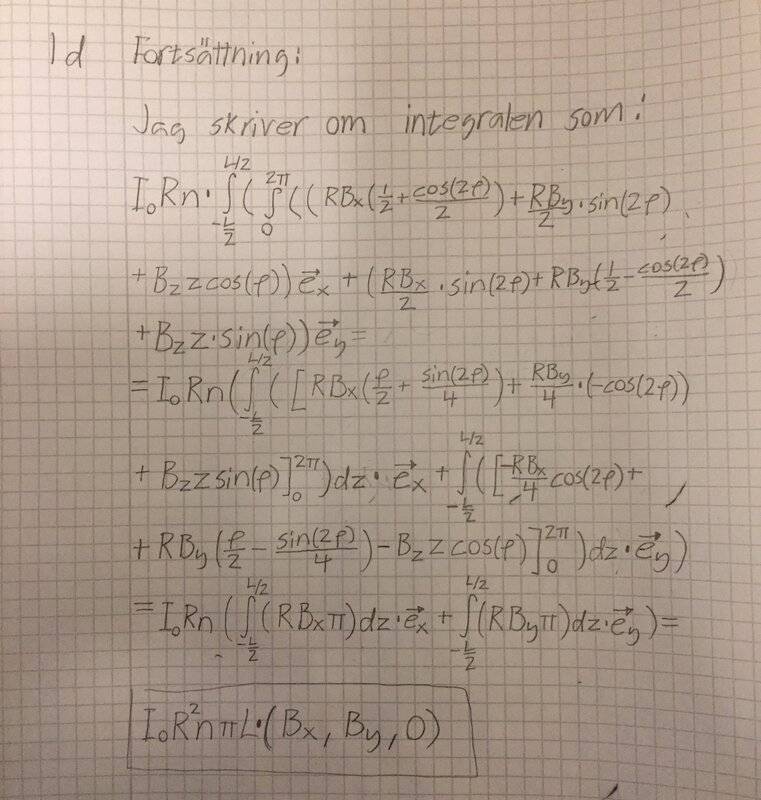 1d Fortsättning:
Jag skriver om integralen som:
I₀Rn·∫_{-L/2}^{L/2}(∫_0^{2π}((RBₓ(1/2+cos(2φ)/2)+RB_y/2·sin(2φ)
+B_z z cos(φ))e⃗ₓ+(RBₓ/2·sin(2φ)+RB_y(1/2-cos(2φ)/2)
+B_z z·sin(φ))e⃗_y=
=I₀Rn(∫_{-L/2}^{L/2}([RBₓ(φ/2+sin(2φ)/4)+RB_y/4·(-cos(2φ))
+B_z z sin(φ)]_0^{2π})dz·e⃗ₓ+∫_{-L/2}^{L/2}([-RBₓ/4 cos(2φ)+
+RB_y(φ/2-sin(2φ)/4)-B_z z cos(φ)]_0^{2π})dz·e⃗_y)
=I₀Rn(∫_{-L/2}^{L/2}(RBₓπ)dz·e⃗ₓ+∫_{-L/2}^{L/2}(RB_yπ)dz·e⃗_y)=
I₀R²nπL·(Bₓ, B_y, 0)